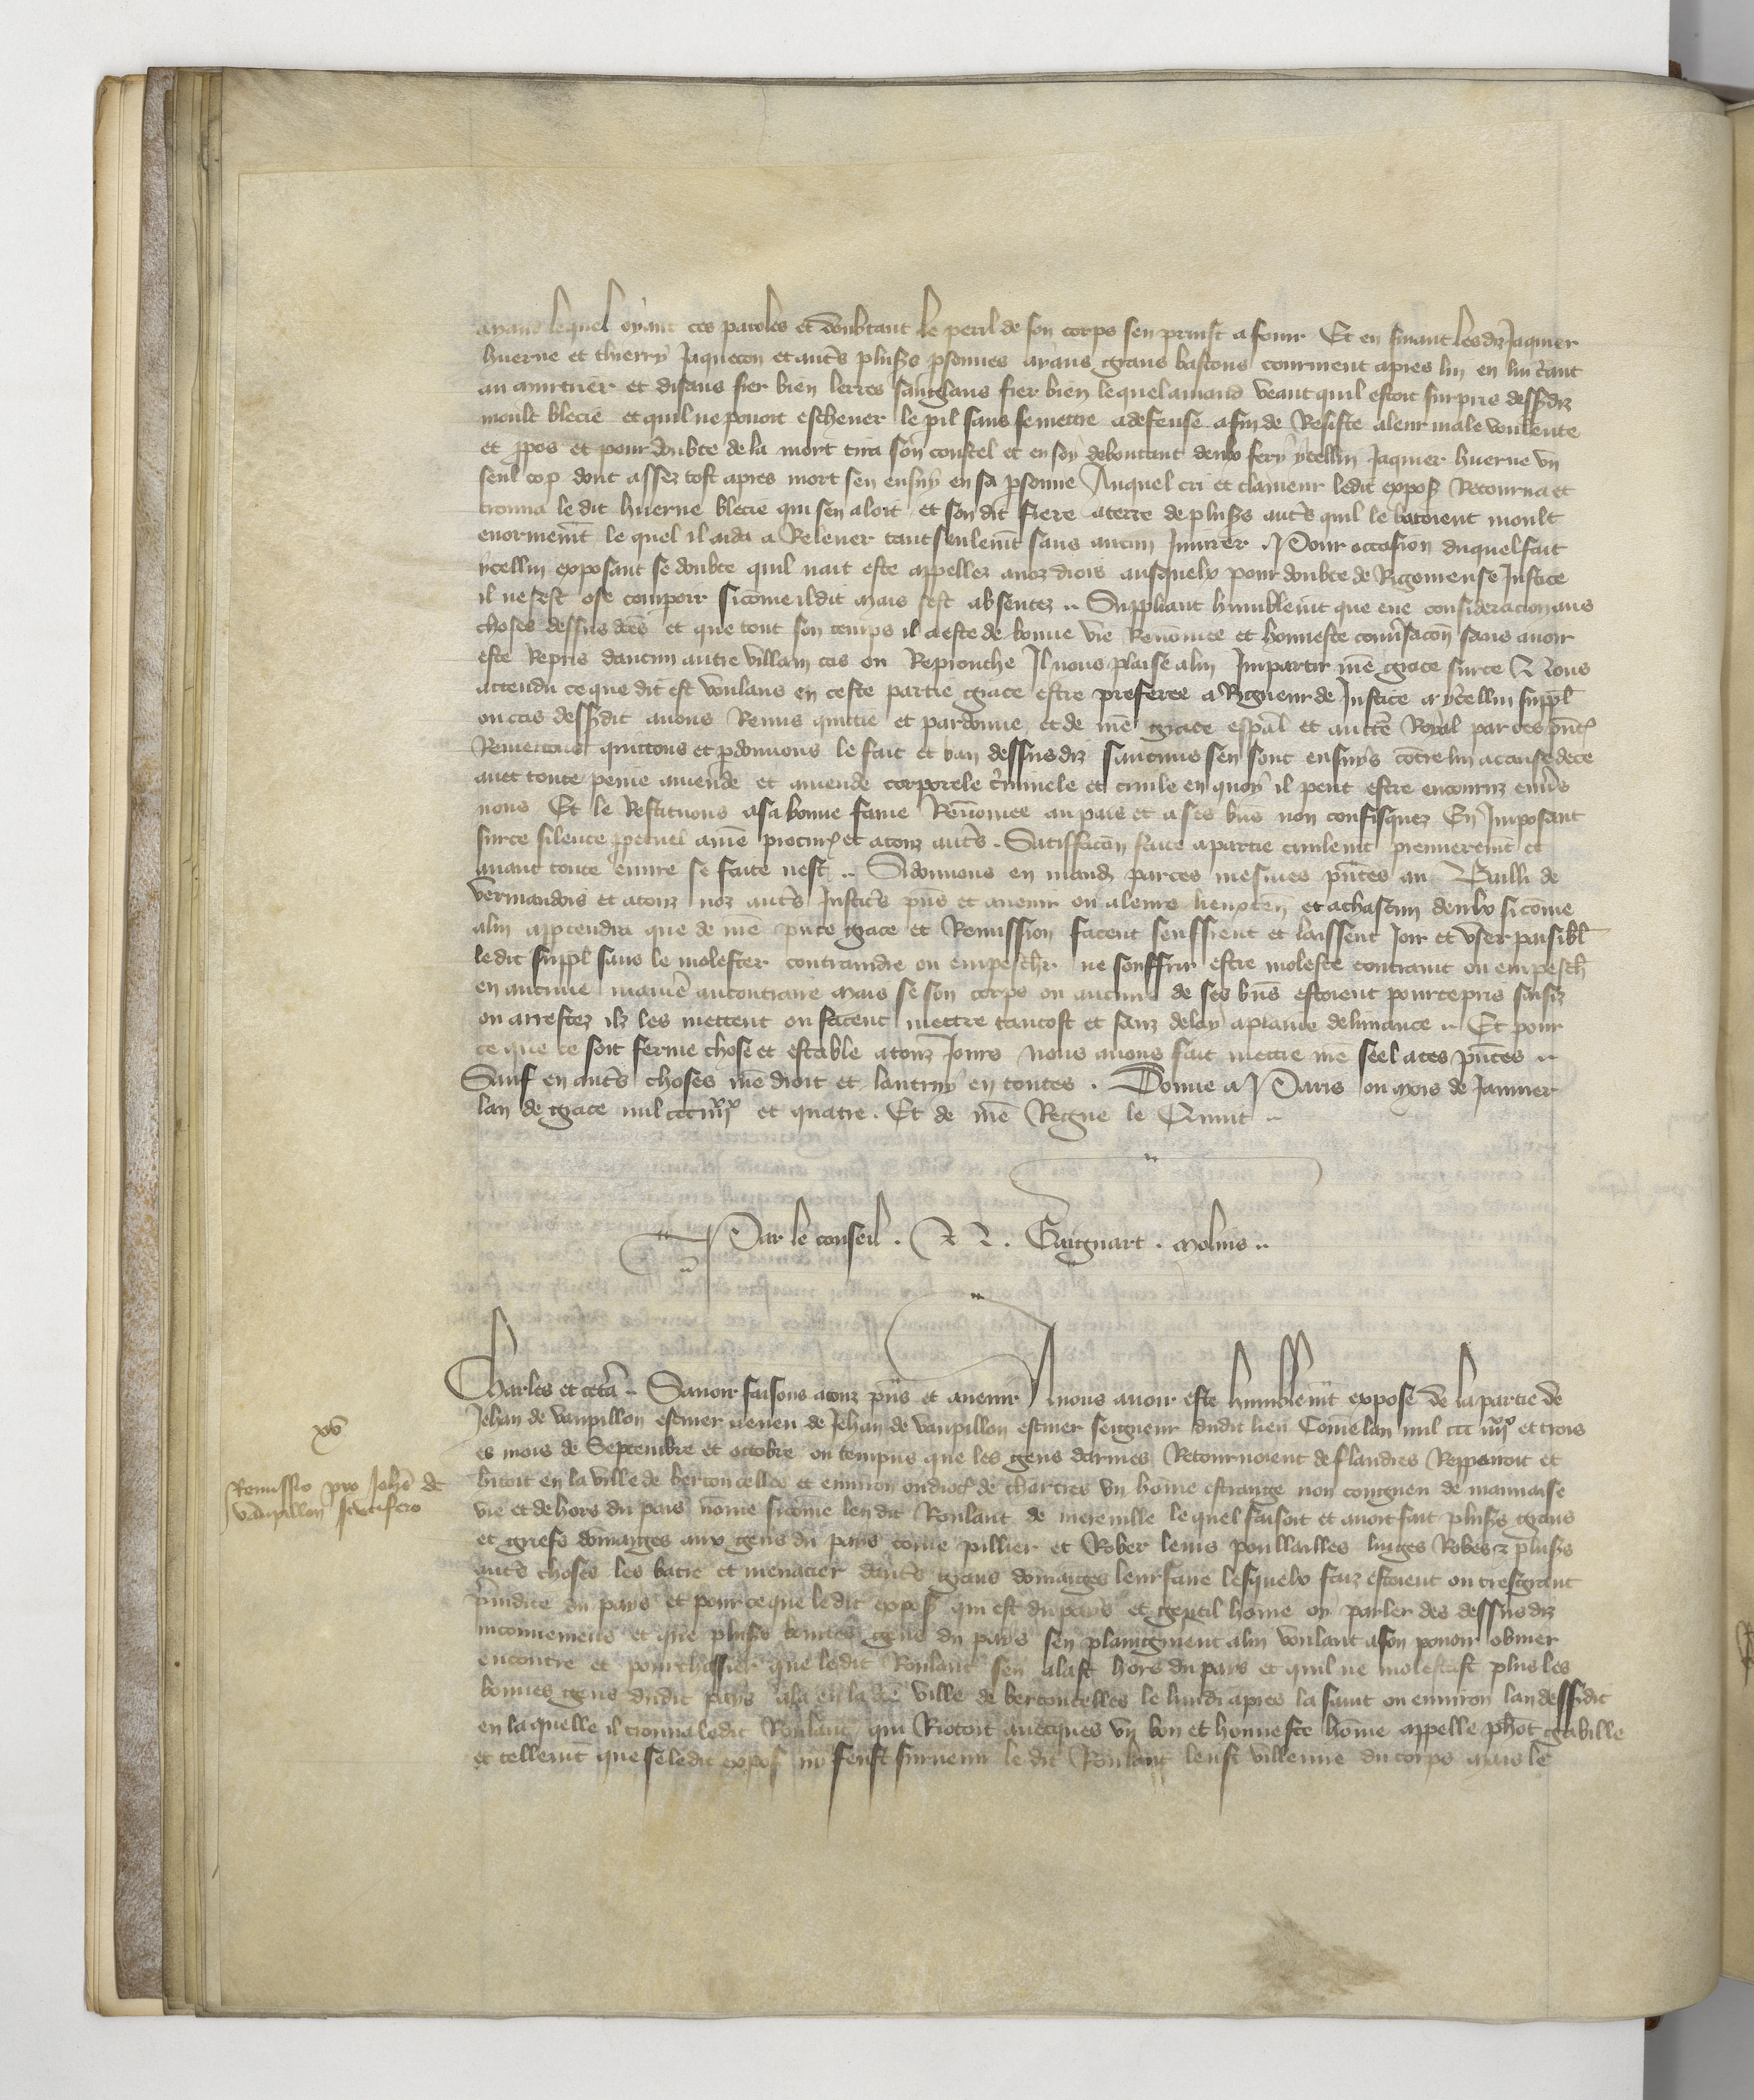 amand lequel oyant ces paroles et doubtant le peril de son corps sen prinst a fouir Et en fuiant les diz Jaquier
huerne et thierry Jaquecon et autres plusrs psonnes ayans grans bastons coururent apres lui en lui criant
au murtrier et disans fier bien lerres sanglans fier bien lequel amand veant quil estoit surpris dessudiz
moult blecie et quil ne povoit eschever le pil sans se mettre a defense afin de Resister a leur male voulente
et propos et pour doubte de la mort tira son coustel et en soy deboutant deulx fery ycellui Jaquier huerne un
seul cop dont assez tost apres mort sen ensuy en sa psonne Auquel cri et clameur ledit expos Retourna et
trouva le dit huerne blecie qui sen aloit et son dit frere a terre de plusrs autrs quil le batoient moult
enormemt le quel il aida a Relever tant seulemt sans aucun Injurier . Pour occasion duquel fait
ycellui exposant se doubte quil nait este appellez a noz drois ausquelx pour doubte de Rigoureuse Justice
il nesest ose comparoir sicome il dit mais sest absentez .. Suppliant humblemt que eue consideracion aus
choses dessus dces et que tout son temps il a este de bonne vie Renomee et honneste conversacon sans avoir
este Repris daucun autre villain cas ou Reprouche Il nous plaise a lui Impartir nre grace sur ce Et Nous
attendu ce que dit est voulans en ceste partie grace estre preferee a Rigueur de Justice a ycellui suppl
ou cas dessudit avons Remis quittie et pardonne et de nre grace espal et auctte Royal par ces pntes
Remettons quittons et pdonnons le fait et ban dessusdiz saucuns sen sont ensuys contre lui a cause de ce
avec toute peine amende et amende corporele criminele et civile en quoy il peut estre encouruz envers
nous Et le Restituons a sa bonne fame Renomee au pais et a ses bns non confisquez En Imposant
sur ce silence ppetuel a nre procur et a touz autrs . Satisfacon faicte a partie civilemt premieremt et
avant toute euvre se faite nest .. Si donnons en mandemt par ces mesmes pntes au Bailli de
vermandois et a touz noz autrs Justicrs pns et avenir ou a leurs lieuxten et a chascun deulx sicome
a lui appartendra que de nre pnte grace et Remission facent seuffrent et laissent Joir et user paisiblt
le dit suppl sans le molester contraindre ou empescher ne souffrir estre moleste contraint ou empesch
en aucune maniere au contraire mais se son corps ou aucuns de ses bns estoient pour ce pris saisiz
ou arrestez ilz les mettent ou facent mettre tantost et sanz delay a plaine delivrance .. Et pour
ce que ce soit ferme chose et estable a touz Jours nous avons fait mettre nre seel a ces pntes ..
Sauf en autrs choses nre droit et lautruy en toutes . Donne a Paris ou mois de Janvier
lan de grace mil ccc iiiixx et quatre . Et de nre Regne le Quint ..
Par le conseil . Gaignart . molins ..
Charles et cetera .. Savoir faisons a touz pns et avenir A nous avoir este humblemt expose de la partie de
Jehan de vaupillon escuier neveu de Jehan de vaupillon escuier seigneur dudit lieu Come lan mil ccc iiiixx et trois
es mois de Septembre et octobre ou temps que les gens darmes Retournoient de flandres Reppairoit et
hitoit en la ville de bertoncelles et environ ou dioc de chartres un home estrange non congneu de mauvaise
vie et de hors du pais nome sicome len dit Roulant de mereville lequel faisoit et avoit fait plusrs grans
et griefs domaiges aux gens du pays come pillier et Rober leurs poullailles linges Robes et plusrs
autrs choses les batre et menacier dautrs grans domaiges leur faire lesquelx faiz estoient ou tresgrant
preiudice du pays et pour ce que le dit expos qui est du pays et gentil home oy parler des dessusdiz
inconveniens et que plusrs bonnes gens du pays sen plaingnirent a lui voulant a son povoir obvier
encontre et pourchassier que ledit Roulant sen alast hors du pays et quil ne molestast plus les
bonnes gens dudit pays ala en la dce ville de bertoncelles le lundi apres la saint ou environ lan dessudit
en laquelle il trouva ledit Roulant qui Riotoit avecques un bon et honneste home appelle phot gabille
et tellemt que se ledit expos ny feust survenu le dit Roulant leust villenne du corps mais le
xv
Remissio pro Johe de
vaupillon scutifero